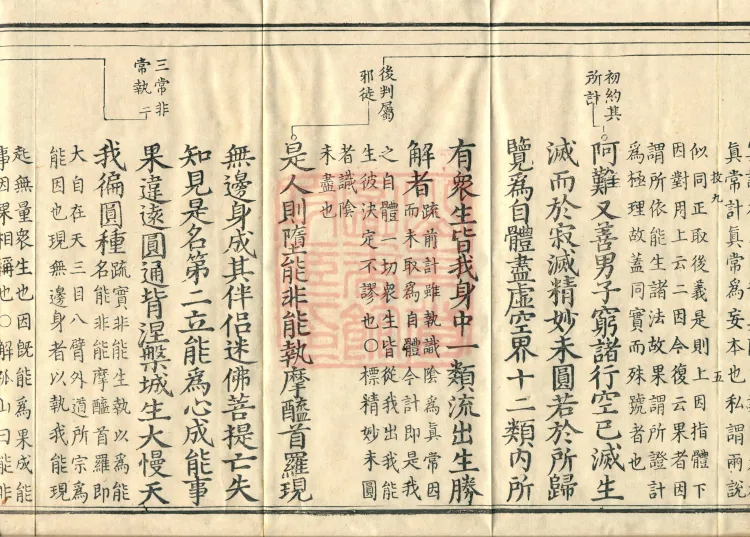 真常計真常為妄本也私謂兩說
枝九
五
似同正取後義是則上因指體下
因對用上云二因今復云果者因
謂所依能生諸法故果謂所證計
為極理故蓋同實而殊號者也
初約其
所計
阿難又善男子窮諸行空已滅生
滅而於寂滅精妙未圓若於所歸
覽為自體盡虛空界十二類內所
後判屬
邪徒
有衆生皆我身中一類流出生勝
解者疏前計雖執識陰為真常因
而未取為自體今計即是我
之自體一切衆生皆從我出我能
生彼決定不謬也○標精妙未圓
者識陰
未盡也
是人則墮能非能執摩醯首羅現
無邊身成其伴侶迷佛菩提亡失
知見是名第二立能為心成能事
果違遠圓通背涅槃城生大慢天
三常非
常執二
我徧圓種疏實非能生執以為能
名能非能摩醯首羅即
大自在天三目八臂外道所宗為
能因也現無邊身者以執我能現
起無量衆生也因旣能為果成能
事因果相稱也○解孤山曰能非